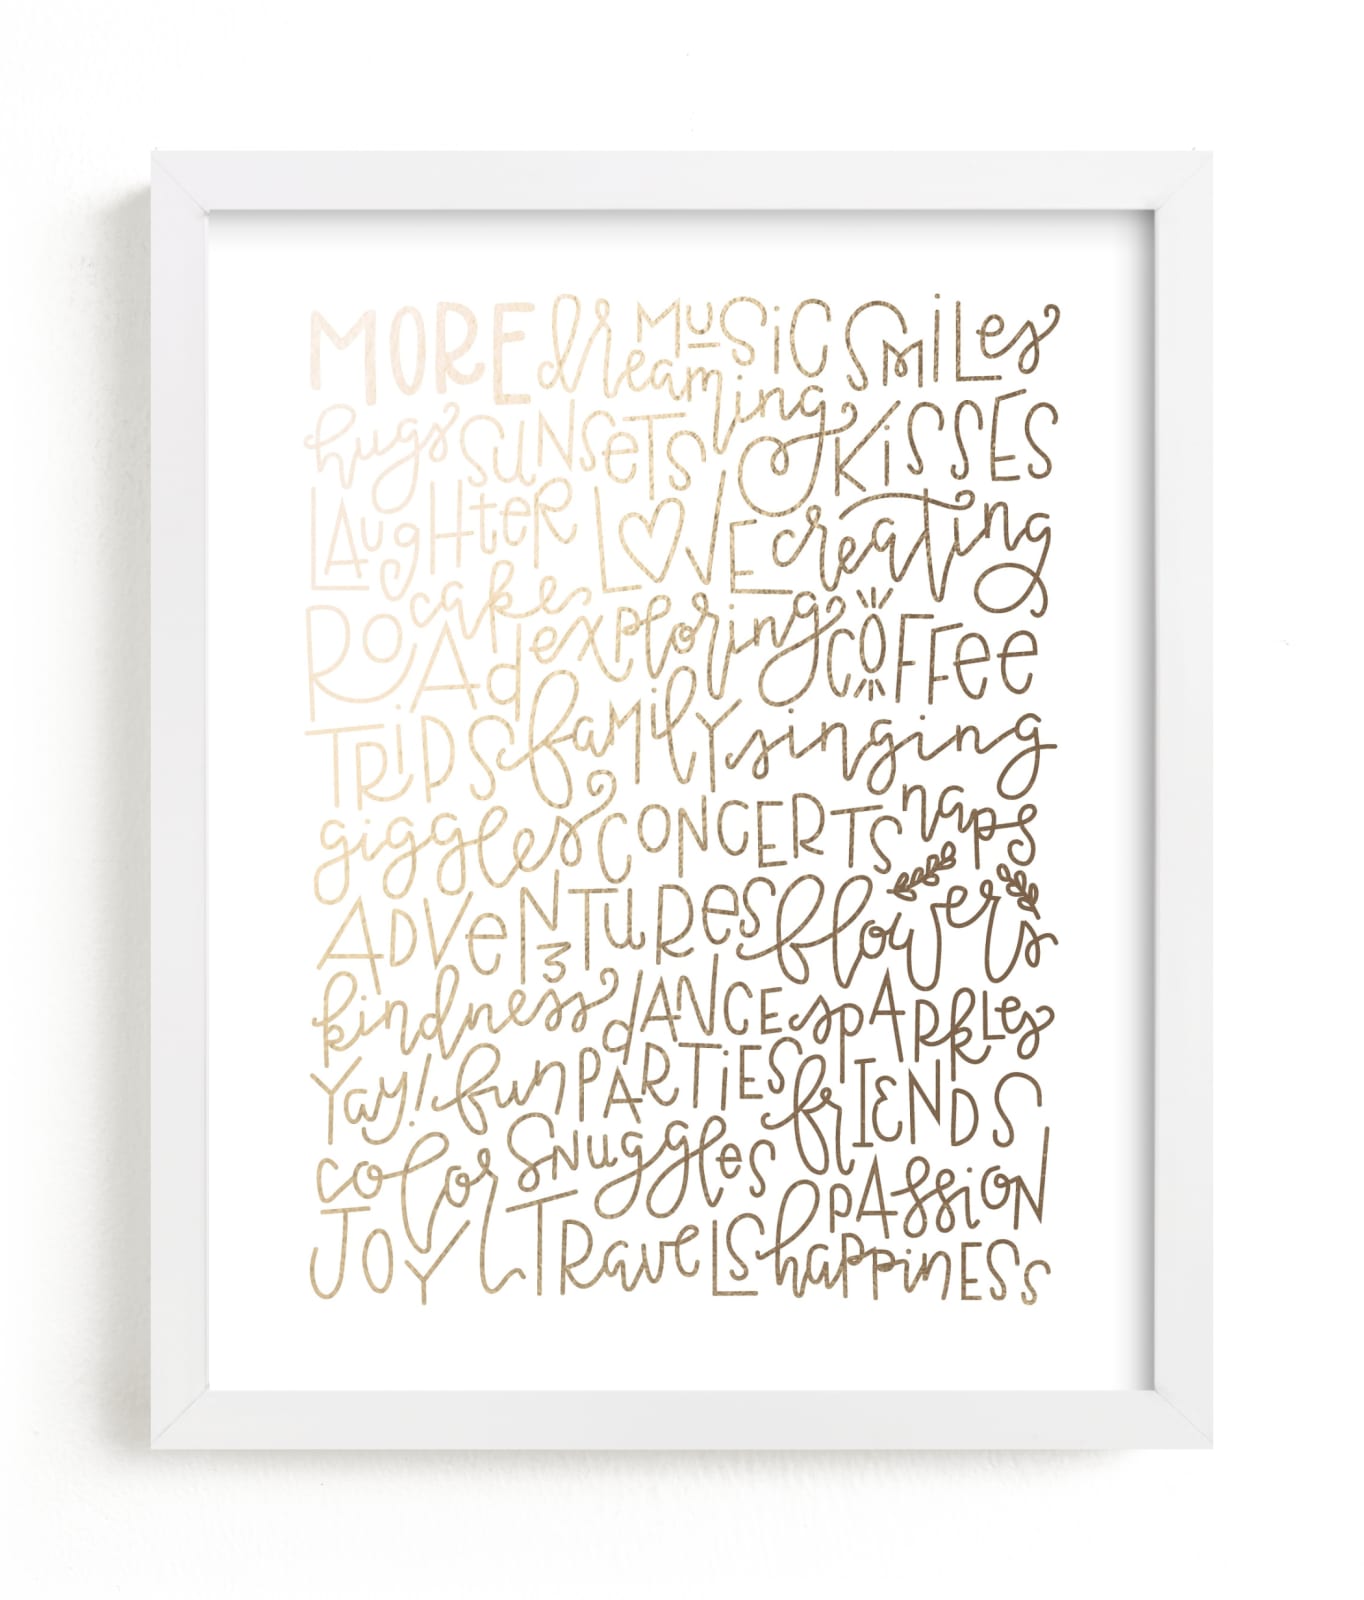 MORE dreaming MUSIC SMILES
hugs SUNSETS KISSES
LAUGHTER LOVE creating
ROAD cake exploring COFFEE
TRIPS family singing
giggles CONCERTS naps
ADVENTURES flowers
kindness DANCE SPARKLES
Yay! fun PARTIES frIENDS
color SNUGGLES PASSION
JOY TRAVELS happINESS